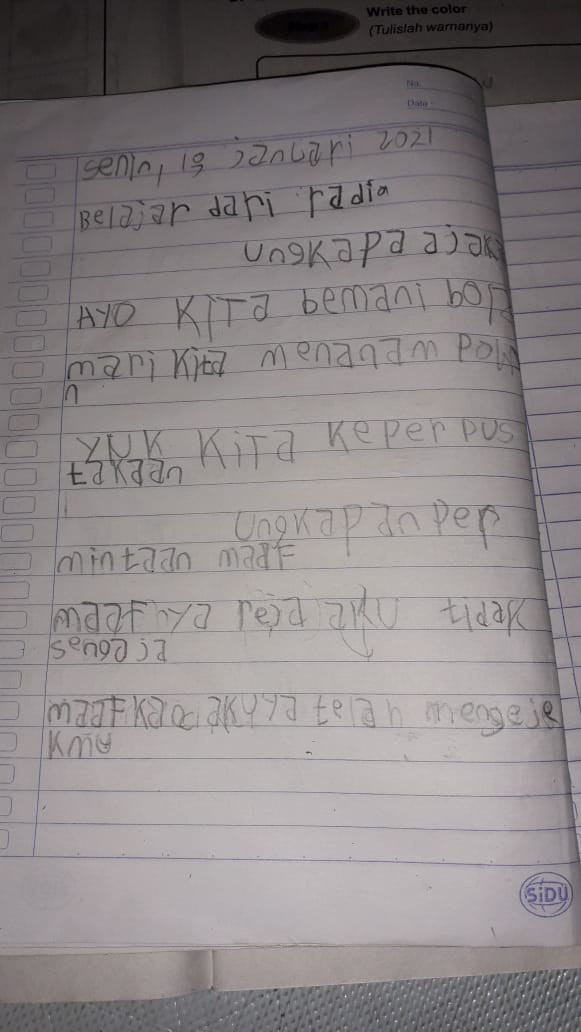 Write the color
(Tulislah warnanya)
No.
Date :
senin, 18 januari 2021
Belajar dari radia
ungkapa ajak
AYO KITa bemani bola
mari kita menanam Pow
n
YUK KiTa Keper pus
takaan
ungkapan per
mintaan maaf
maaf ya reja aku tidak
sengaja
maaf akuya telah mengeje
kmu
SiDU